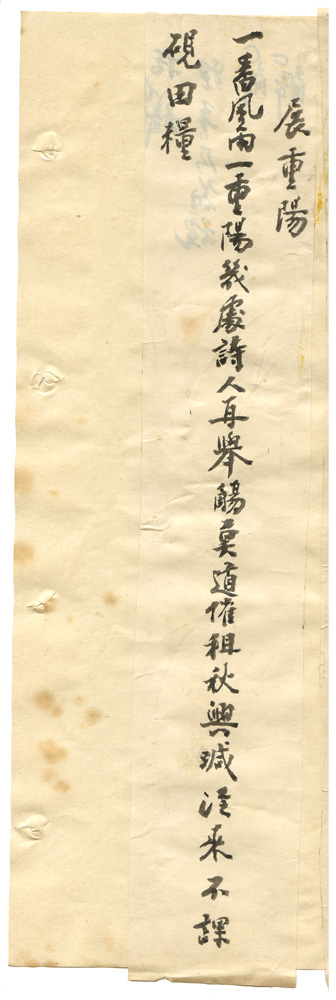 展重陽
一番風雨一重陽幾處詩人再舉觴莫道催租秋興減從來不課
硯田糧